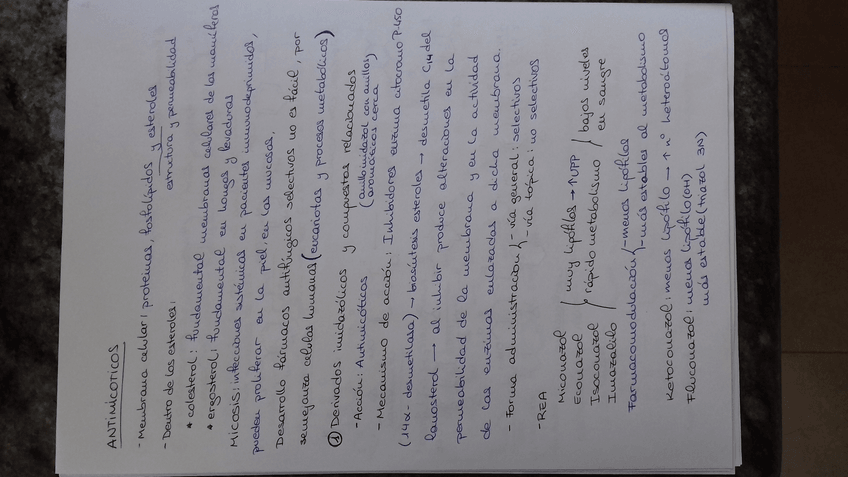 ANTIMICÓTICOS
- Membrana celular: proteínas, fosfolípidos y esteroles
estrutura y permeabilidad
- Dentro de los esteroles:
* colesterol: fundamental membranas celulares de los mamíferos
* ergosterol: fundamental en hongos y levaduras
Micosis: infecciones sistémicas en pacientes inmunodeprimidos,
pueden proliferar en la piel, en las mucosas.
Desarrollo fármacos antifúngicos selectivos no es fácil, por
semejanza celulas humanas (eucariotas y procesos metabólicos)
① Derivados imidazólicos y compuestos relacionados
- Acción: Antimicóticos (anillo imidazol con anillos aromáticos cerca)
- Mecanismo de acción: Inhibidores enzima citocromo P-450
(14α-desmetilasa) → biosíntesis esteroles → desmetila C14 del
lanosterol → al inhibir produce alteraciones en la
permeabilidad de la membrana y en la actividad
de las enzimas enlazadas a dicha membrana.
- Forma administración { - vía general: selectivos
- vía tópica: no selectivos
- REA
Miconazol
Econazol
Isoconazol
Imazalilo
muy lipófilos → ↑UPP
rápido metabolismo
bajos niveles
en sangre
Farmacomodulación { - menos lipófilos
- más estables al metabolismo
Ketoconazol: menos lipófilo → ↑ nº heteroátomos
Fluconazol: menos lipófilo (OH)
más estable (triazol 3N)